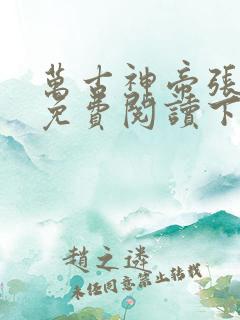 萬古神帝張
免費閱讀下
趙之遴
未經同意禁止轉載